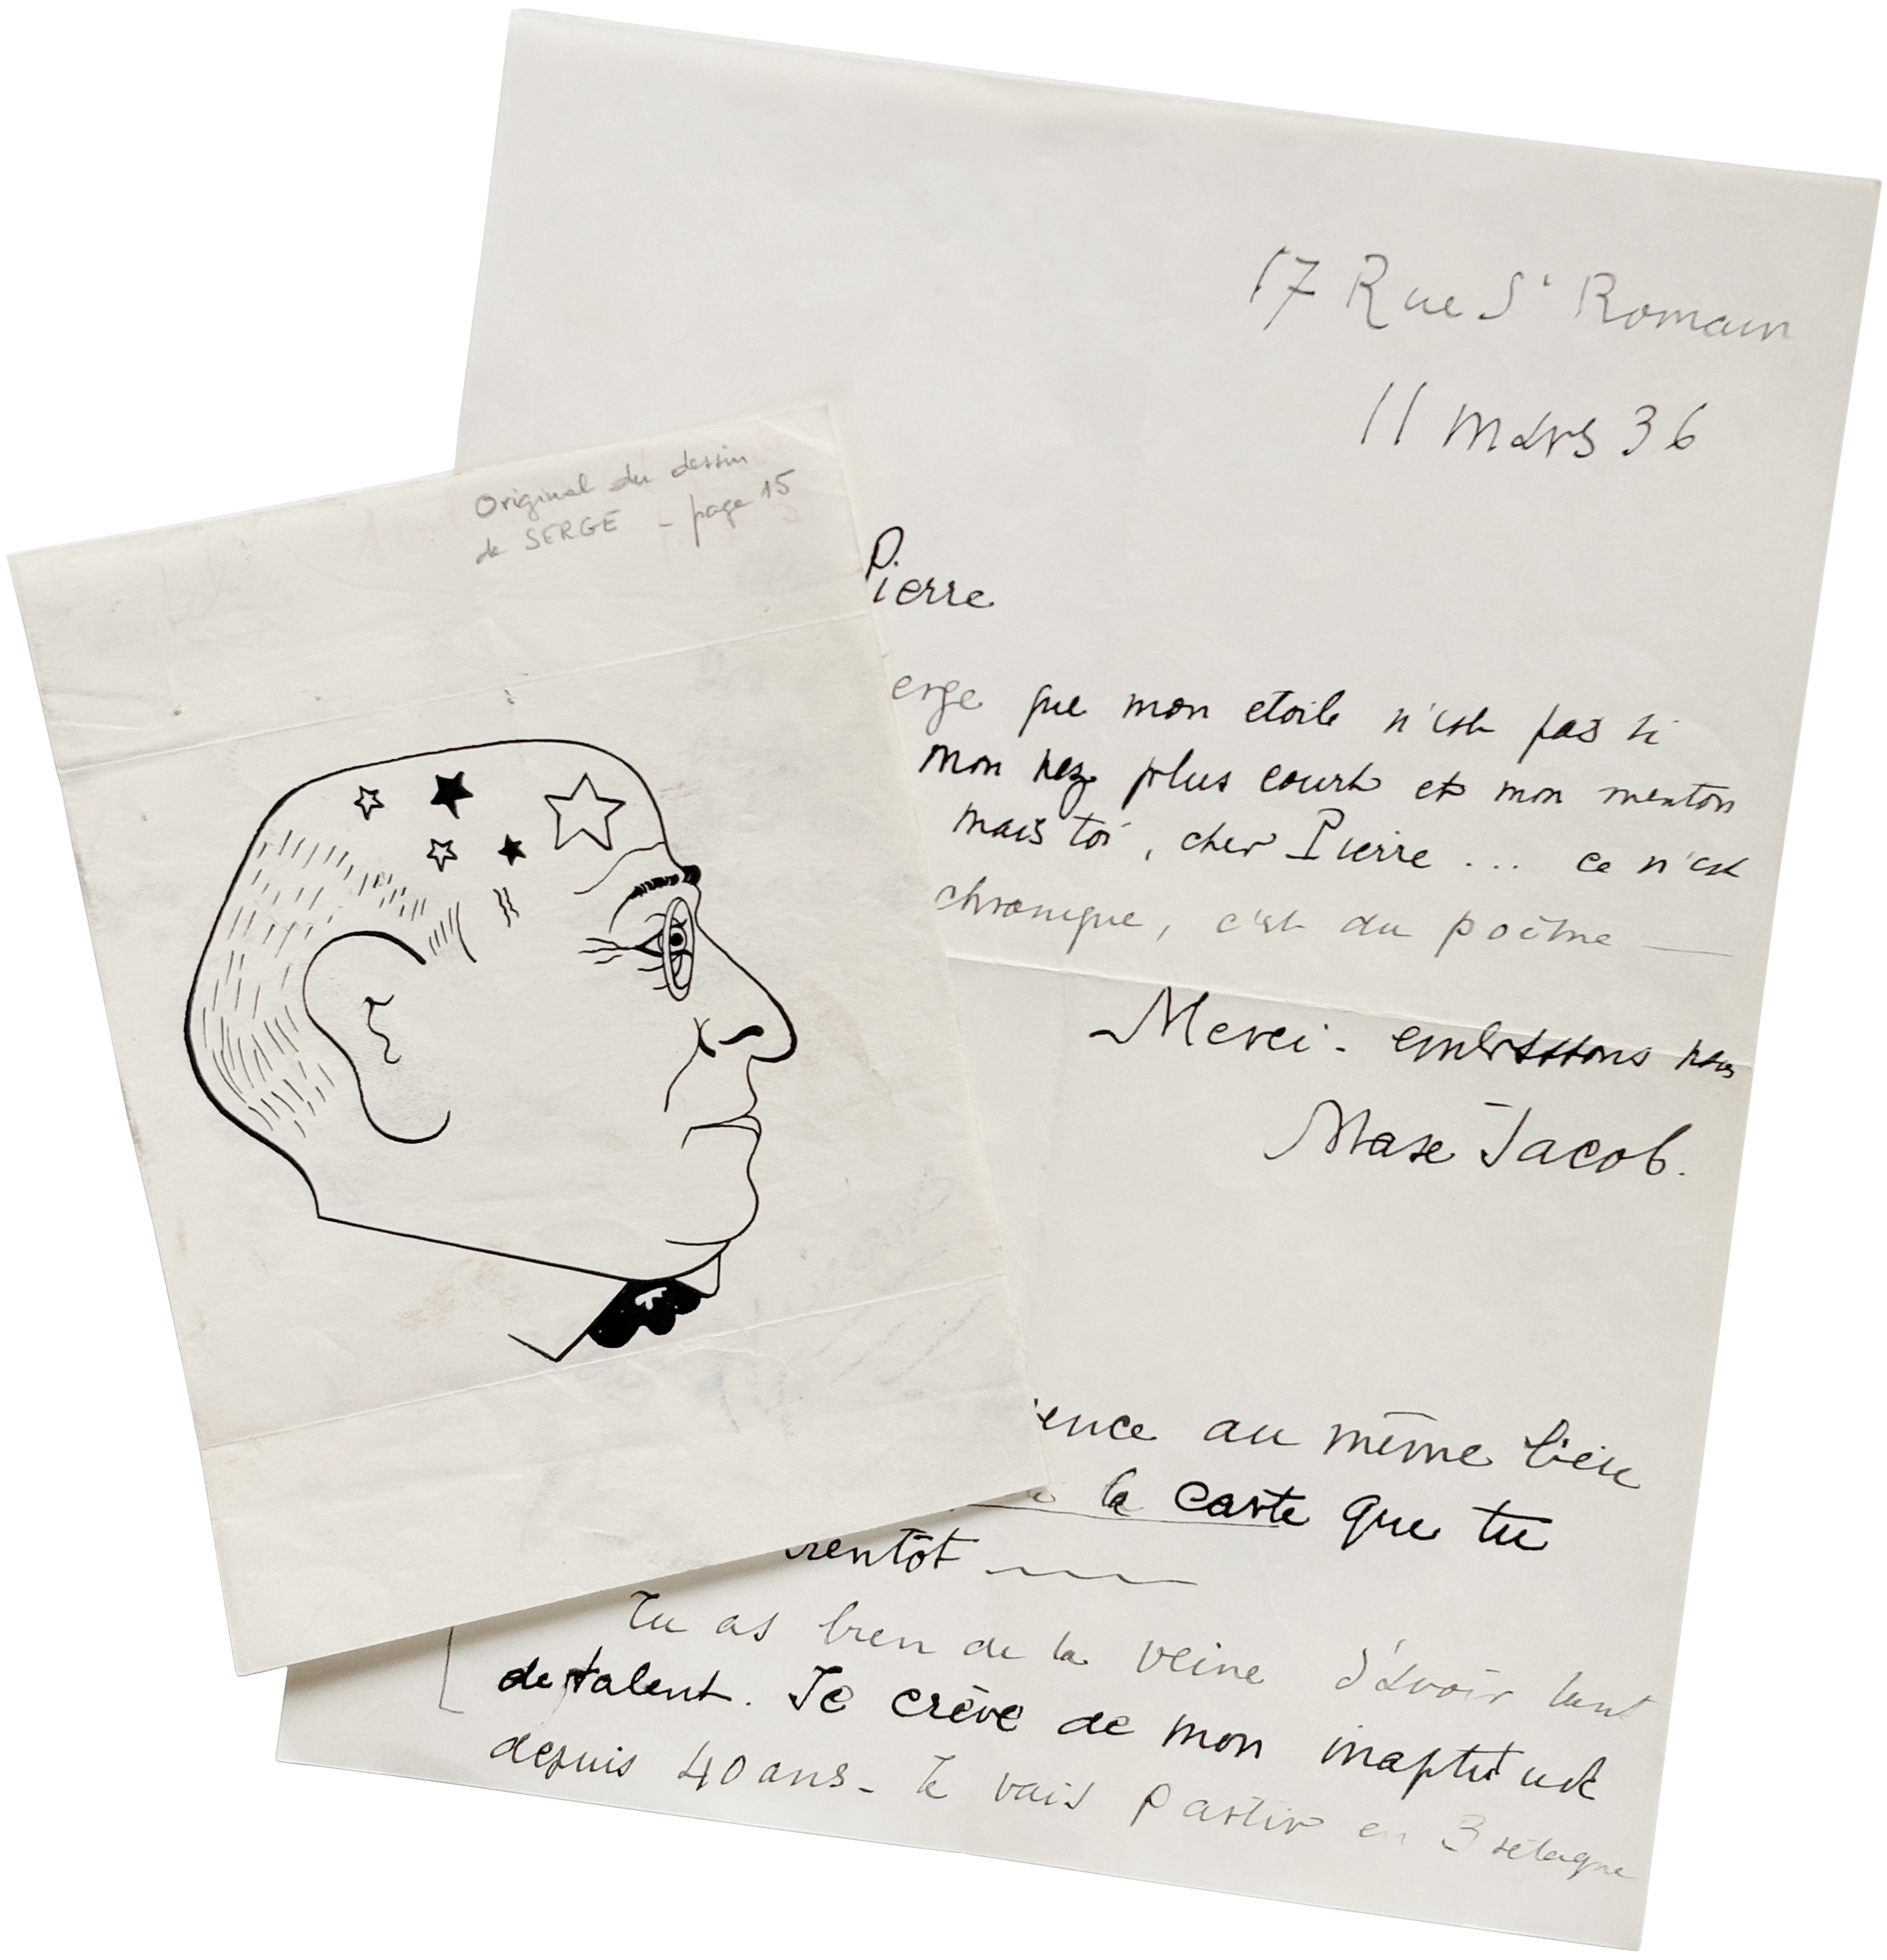 17 Rue St Romain
11 mars 36
Original du dessin
de SERGE - page 15
Pierre
erge que mon etoile n'est pas si
mon nez plus court et mon menton
mais toi, cher Pierre ... ce n'est
chronique, c'est du poême —
Merci - embrassons nous
Max Jacob.
ence au même lieu
la carte que tu
rentôt
Tu as bien de la veine d'avoir tant
de talent. Je crève de mon inaptitude
depuis 40 ans - Je vais partir en Bretagne